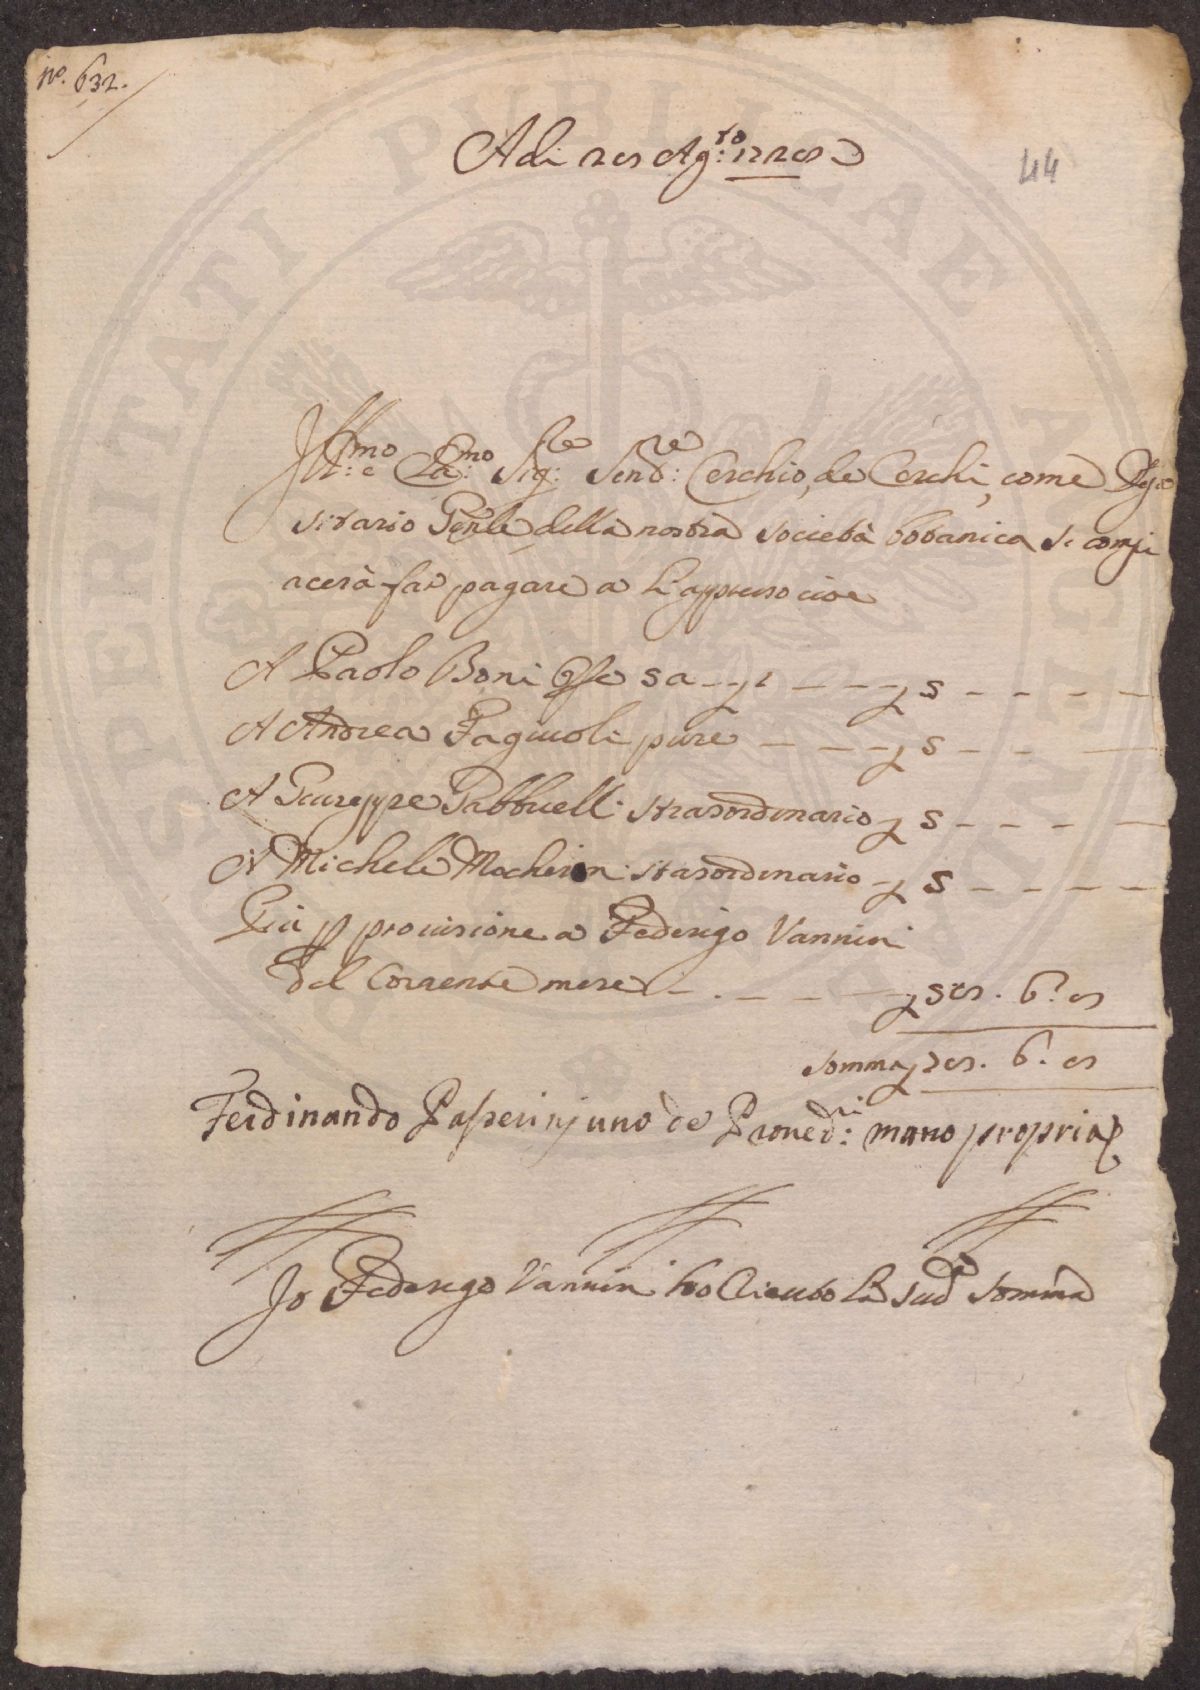 N.º 632.
Adi Ag:to
44
Ill:mo e Sig:re Send:re Cerchio, de Cerchi, come Depo
sitario Genle della nostra società bottanica si compi
acerà far pagare a li appreso cioe
A Paolo Boni 5
A Andrea Fagiuoli pure 5
A Giuseppe Gabbrielli straordinario 5
A Michele Macherini straordinario 5
Piu p provisione a Federigo Vannini
del Corrente mese 6.
Somma 6.
Ferdinando Passerinj uno de Proved:ri mano propria
Io Federigo Vannini ho riceuto la sudª Somma
STERITATI PUBLICAE